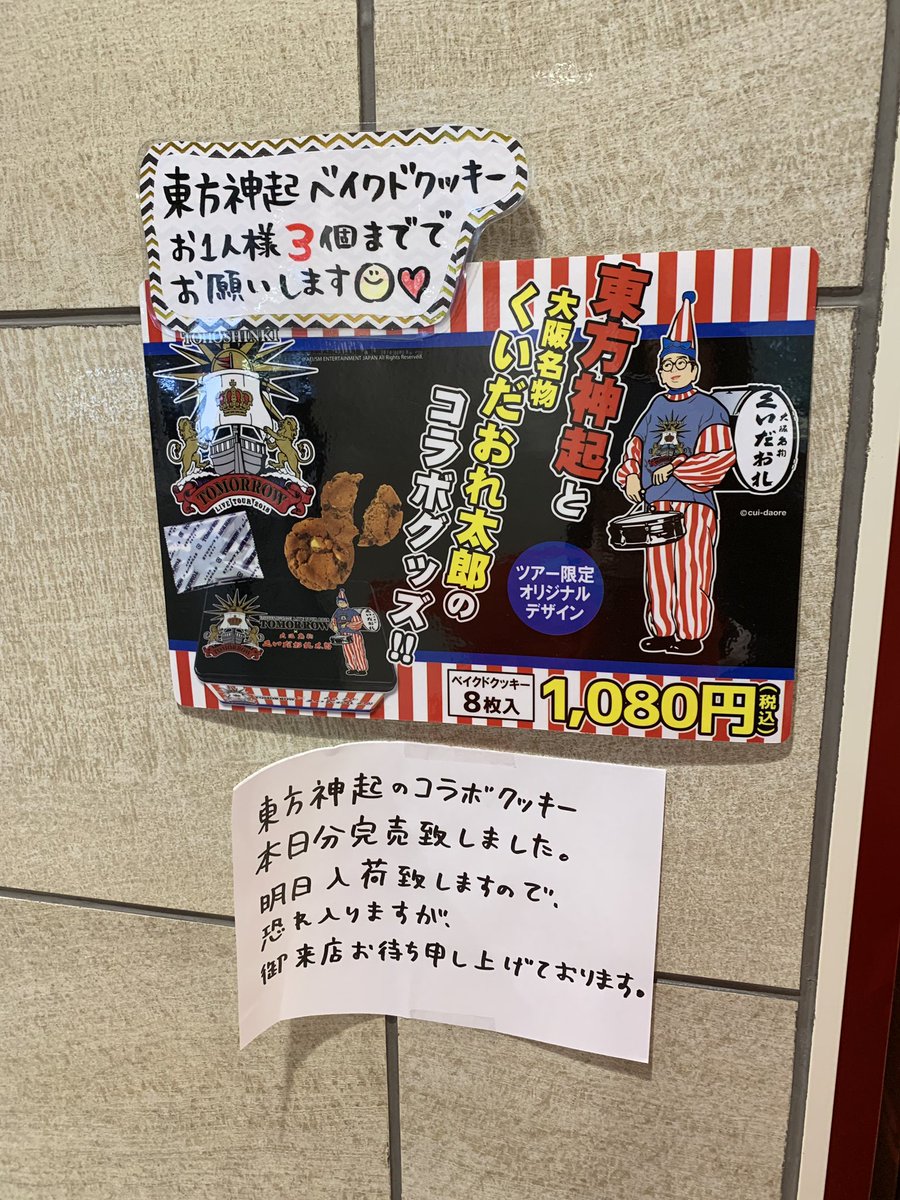 東方神起 ベイクドクッキー
お1人様3個までで
お願いします
TOHOSHINKI
TOMORROW
LIVE TOUR 2018
ENTERTAINMENT JAPAN All Rights Reserved.
東方神起と
大阪名物
くいだおれ太郎の
コラボグッズ!!
大阪名物
くいだおれ
©cui-daore
ツアー限定
オリジナル
デザイン
TOMORROW
大阪名物
くいだおれ太郎
ベイクドクッキー
8枚入
1,080円(税込)
東方神起のコラボクッキー
本日分完売致しました。
明日入荷致しますので、
恐れ入りますが、
御来店お待ち申し上げております。